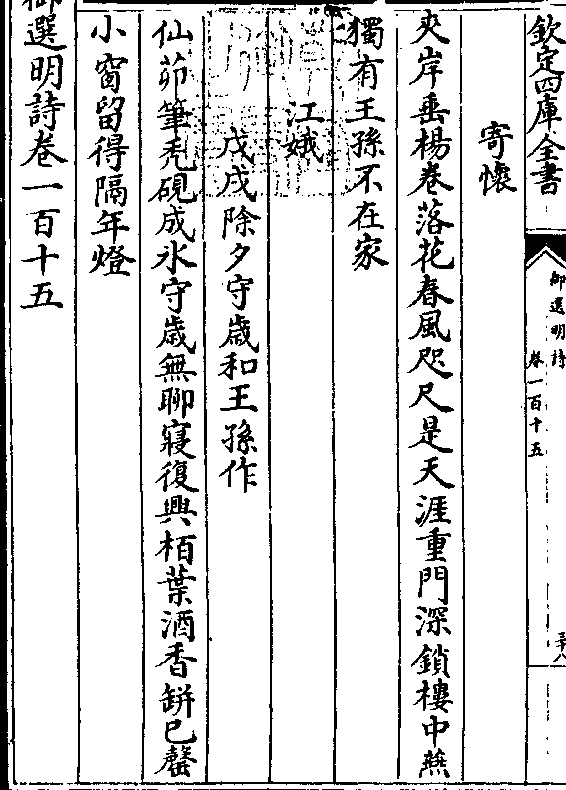 欽定四庫全書
御選明詩
卷一百十五
三十八
寄懷
夾岸垂楊卷落花春風咫尺是天涯重門深鎖樓中燕
獨有王孫不在家
江娥
戊戌除夕守歲和王孫作
仙茆筆禿硯成氷守歲無聊寢復興栢葉酒香缾已罄
小窗留得隔年燈
御選明詩卷一百十五